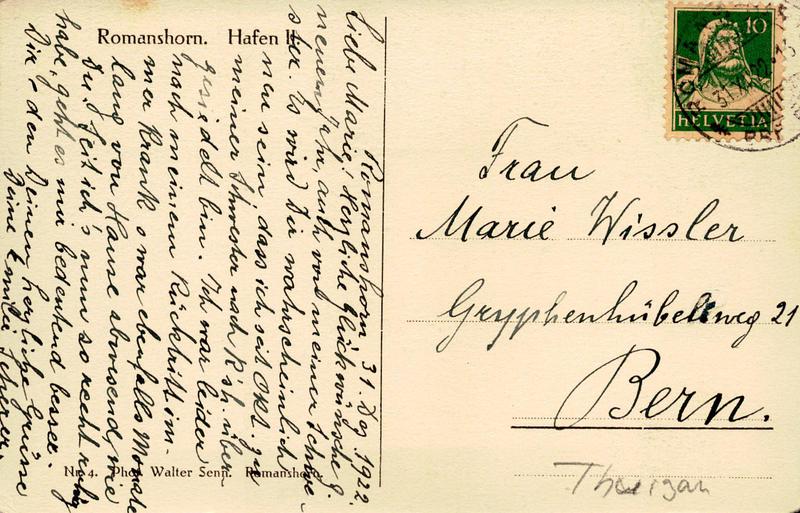 Romanshorn. Hafen II.
Romanshorn 31. Dez. 1922.
Liebe Marie! Herzliche Glückwünsche z.
neuen Jahr, auch von meiner Schwe-
ster. Es wird Dir wahrscheinlich
neu sein, dass ich seit Okt. zu
meiner Schwester nach R'sh. über-
gesiedelt bin. Ich war leider
nach meinem Rücktritt im-
mer krank & war ebenfalls Monate
lang von Hause abwesend, wie
Du. Seit ich's nun so recht ruhig
habe, geht es mir bedeutend besser.
Dir & den Deinen herzliche Grüsse
Deine Emilie Scherer.
Nr. 4. Phot. Walter Senn. Romanshorn.
10
HELVETIA
Frau
Marie Wissler
Gryphenhübeliweg 21
Bern.